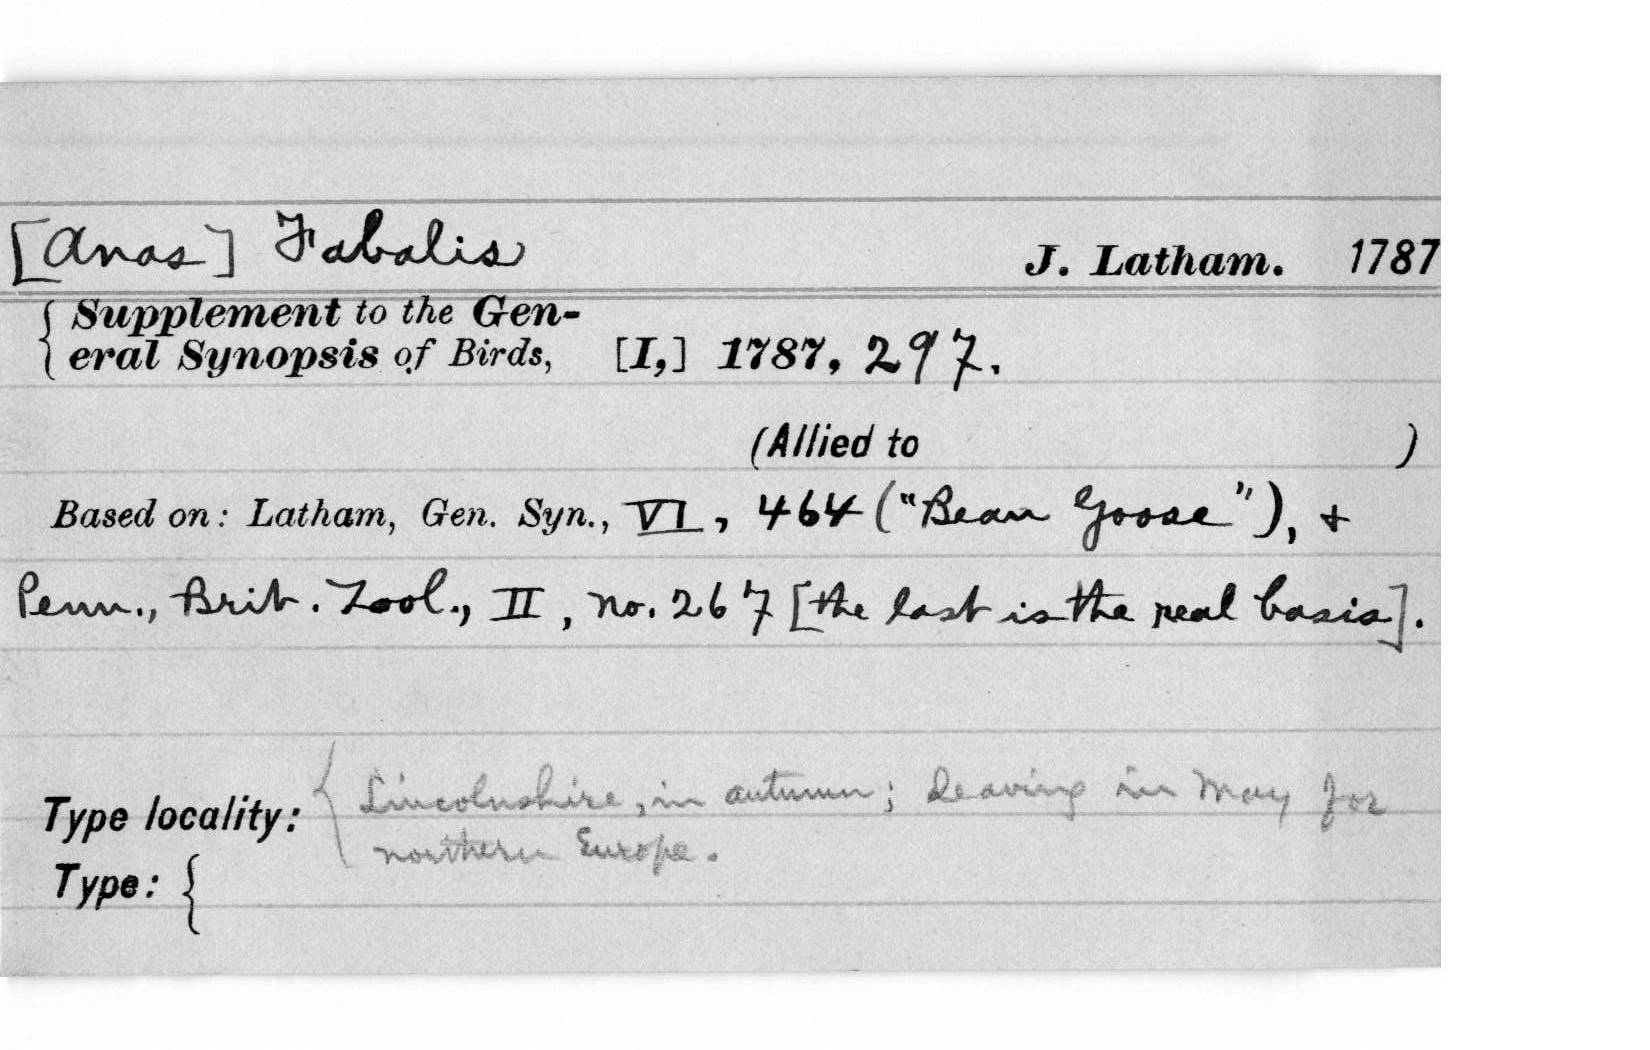 [Anas] Fabalis J. Latham. 1787
{ Supplement to the Gen-
eral Synopsis of Birds, [I,] 1787, 297.
(Allied to )
Based on: Latham, Gen. Syn., VI, 464 ("Bean Goose"), +
Penn., Brit. Zool., II, no. 267 [the last is the real basis].
Type locality: { Lincolnshire, in autumn; leaving in May for
northern Europe.
Type: {